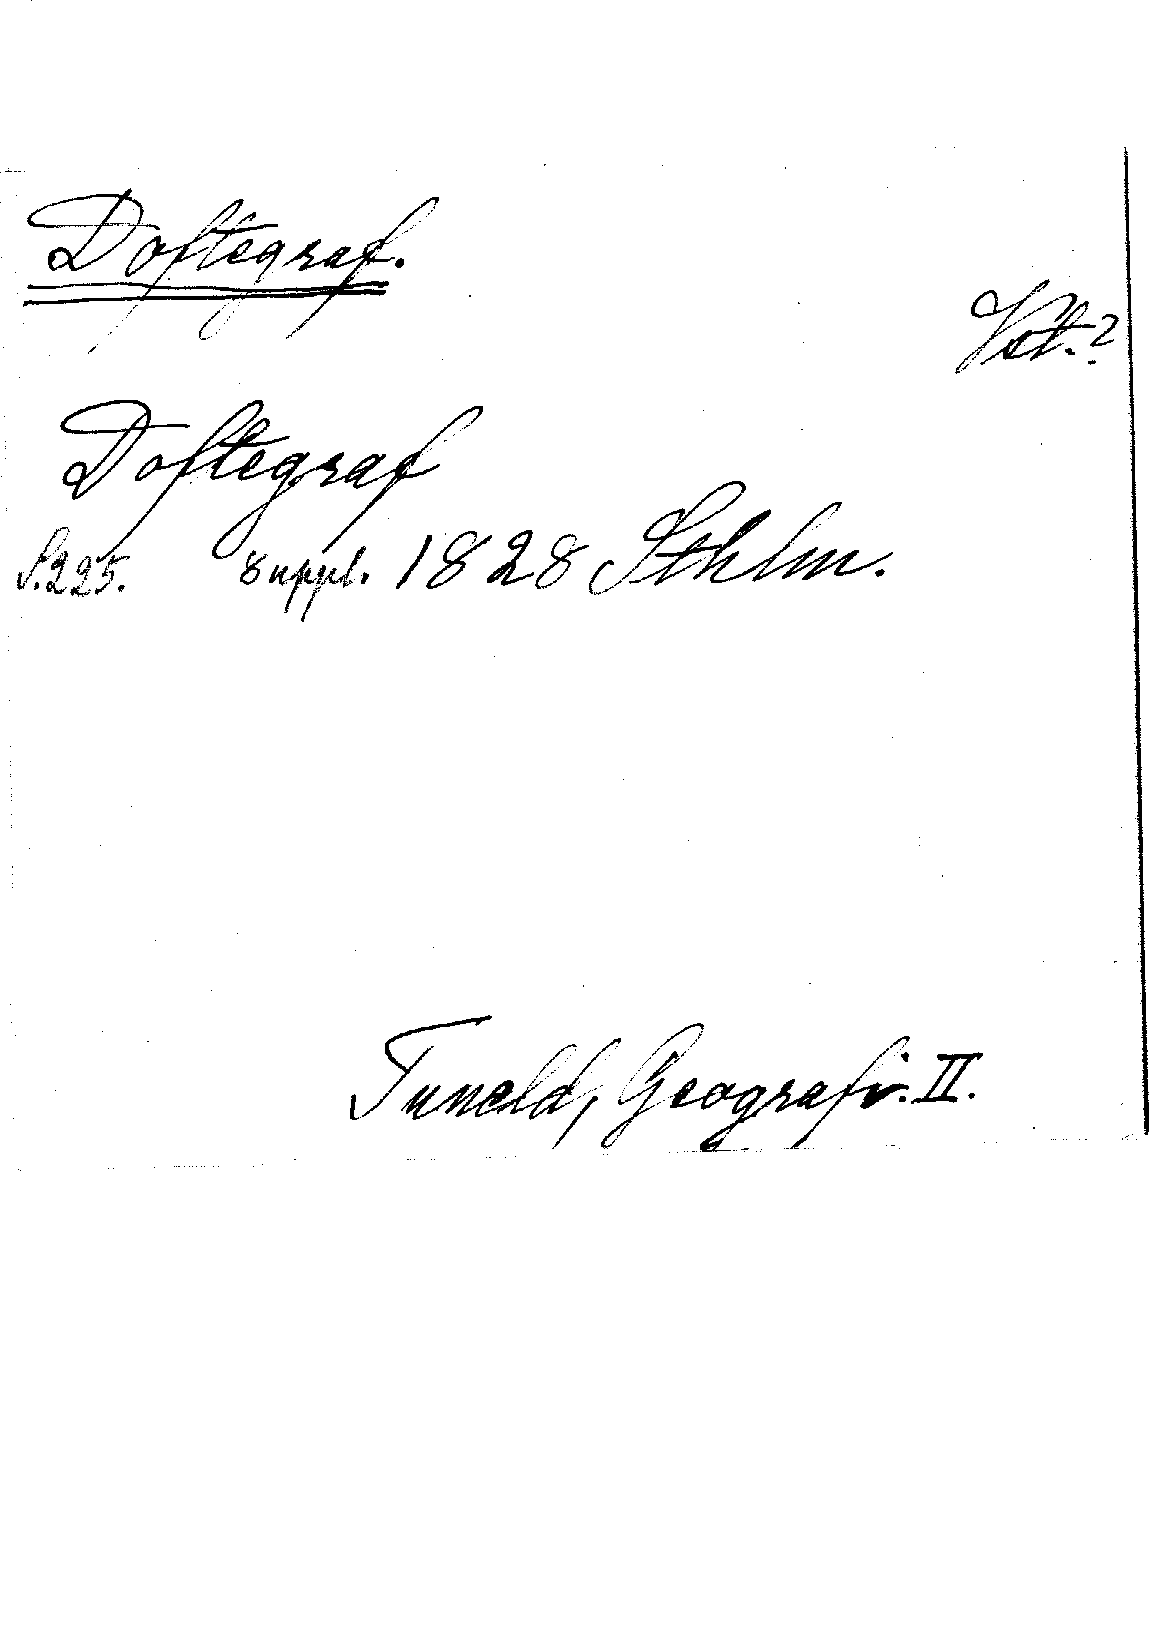 Doftegraf.
Vst.?
Doftegraf
S.225. suppl. 1828 Sthlm.
Tuneld, Geografi. II.